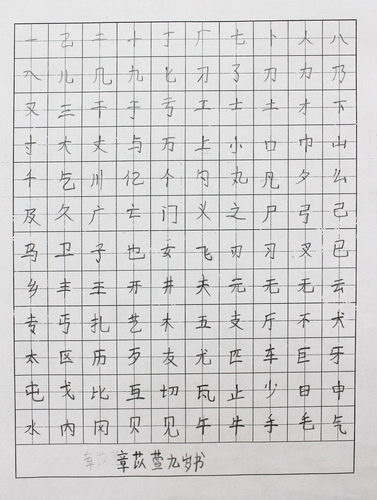 一 乙 二 十 丁 厂 七 卜 人 八
入 儿 几 九 匕 刁 了 刀 力 乃
又 三 干 于 亏 工 士 土 才 下
寸 大 丈 与 万 上 小 口 巾 山
千 乞 川 亿 个 勺 丸 凡 夕 么
及 久 广 亡 门 义 之 尸 弓 己
马 卫 子 也 女 飞 刃 习 叉 巳
乡 丰 王 开 井 夫 元 无 无 云
专 丐 扎 艺 木 五 支 厅 不 犬
太 区 历 歹 友 尤 匹 车 巨 牙
屯 戈 比 互 切 瓦 止 少 日 中
水 内 冈 贝 见 午 牛 手 毛 气
章苡萱九岁书